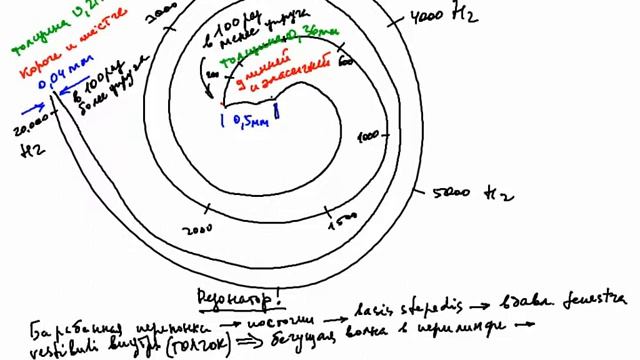 3000
4000 Hz
толщина 0,21
короче и жёстче
0,04 мм
в 100 раз
более упруга
20,000
Hz
в 100 раз
менее упруга
толщина 0,36 мм
длинней
и эластичней
200
600
0,5 мм
1000
5000 Hz
2000
1500
Резонатор!
Барабанная перепонка → косточки → basis stepedis → вдавл. fenestra
vestibuli внутрь (толчок) ⇒ бегущая волна в перилимфе →